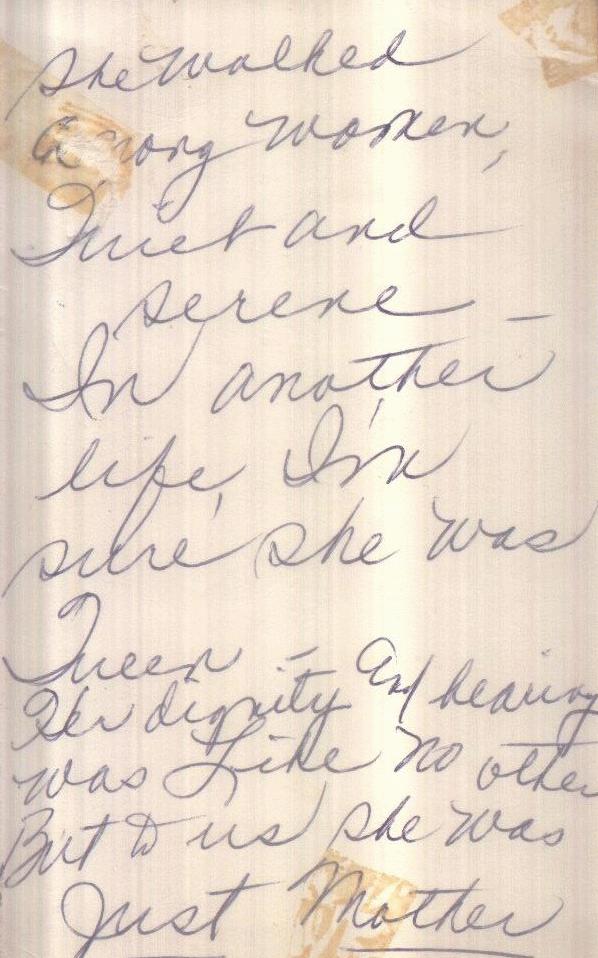 she walked
Among women,
Quiet and
serene –
In another
life, I'm
sure she was
Queen –
Her dignity and bearing
was Like no other
But to us she was
Just Mother